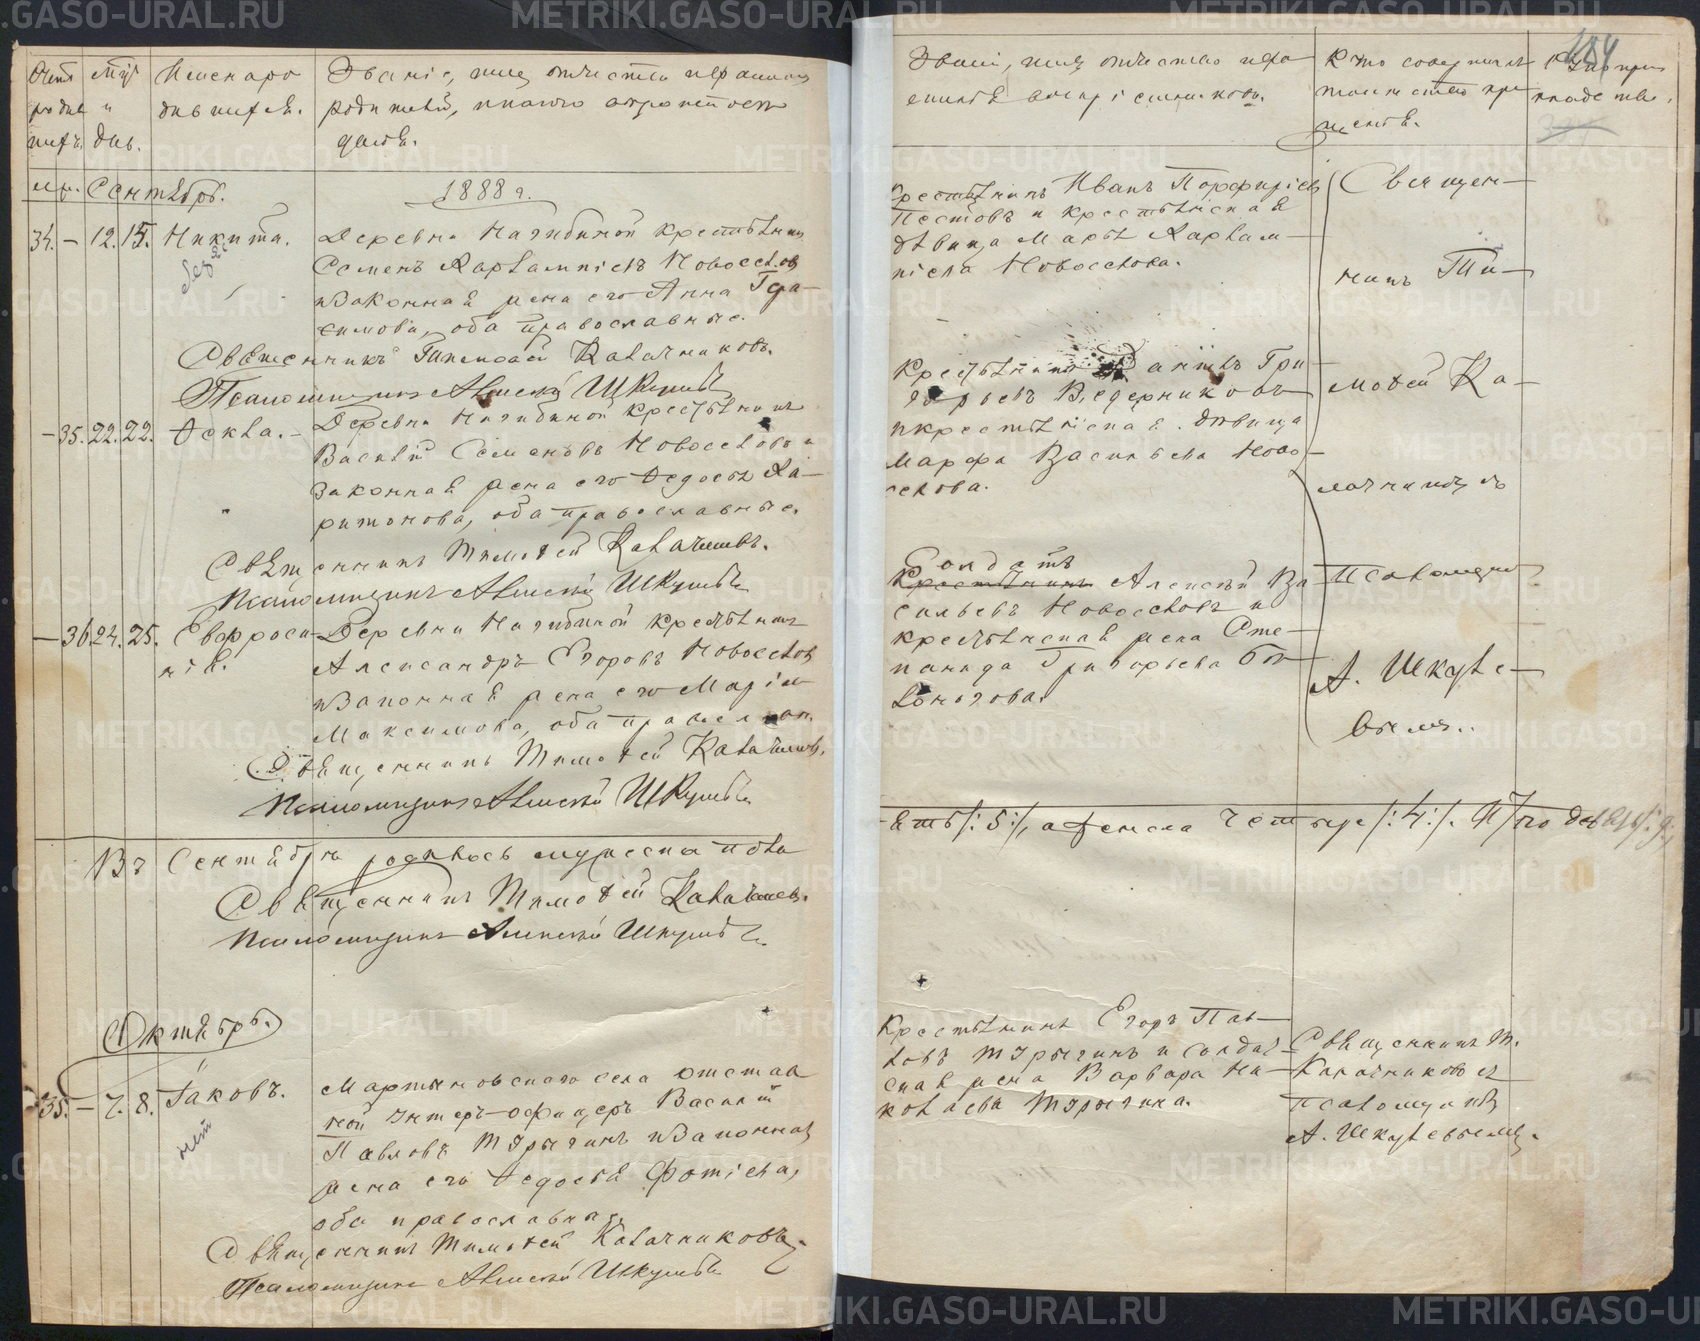 Счетъ родив шихъ
Мѣс. и день.
Имена ро дившихся.
Званіе, имя, отчество и фамилія
родителей, и какого вѣроисповѣ
данія.
Сентябрь. 1888 г.
34. – 12. 15. Никита. Деревни Нагибиной крестьянин
Семенъ Харлампіевъ Новоселов
и законная жена его Анна Гера–
симова, оба православные.
Священникъ Тимофей Калачниковъ.
Псаломщикъ Алексѣй Шкулев
– 35. 22. 22. Ѳекла. – Деревни Нагибиной крестьянинъ
Василій Семеновъ Новоселовъ и
законная жена его Ѳедосья Ха–
ритонова, оба православные.
Священникъ Тимоѳей Калачниковъ.
Псаломщикъ Алексѣй
– 36. 24. 25. Евфроси– Деревни Нагибиной крестьянинъ
нія. Александръ Егоровъ Новоселовъ
и законная жена его Марія
Максимова, оба православн.
Священникъ Тимоѳей Калачниковъ.
Псаломщикъ Алексѣй
Въ Сентябрѣ родилось мужеска пола
Священникъ Тимоѳей Калачниковъ.
Псаломщикъ Алексѣй
Октябрь.
35. – 7. 8. Іаковъ. Мартыновскаго села отстав
нет ной унтеръ-офицеръ Василій
Павловъ Тырыгинъ и законная
жена его Ѳедосья Фотіева,
оба православные.
Священникъ Тимоѳей Калачниковъ
Псаломщикъ Алексѣй
Званіе, имя, отчество и фа
милія воспріемниковъ.
Кто совершалъ
таинство кре
щенія.
184
Крестьянинъ Иванъ Порфирьев
Постовъ и крестьянская
дѣвица Марья Харлам–
піева Новоселова.
Священ–
никъ Ти–
Крестьянинъ Данилъ Гри–
горьевъ Ведерниковъ
и крестьянская дѣвица
Марфа Васильева Ново–
селова.
моѳей Ка–
лачниковъ
Солдатъ
Крестьянинъ Алексѣй Ва
сильевъ Новоселовъ и
крестьянская жена Сте–
панида Григорьева Бѣ–
лоногова.
Псаломщикъ
А. Шкуле–
–ять /:5:/, а женска четыре /:4:/. Итого девять /:9:/
Крестьянинъ Егоръ Пав–
ловъ Тырыгинъ и солдат–
ская жена Варвара Ни–
колаева Тырыгина.
Священникъ Т.
Калачниковъ съ
псаломщикомъ
А.